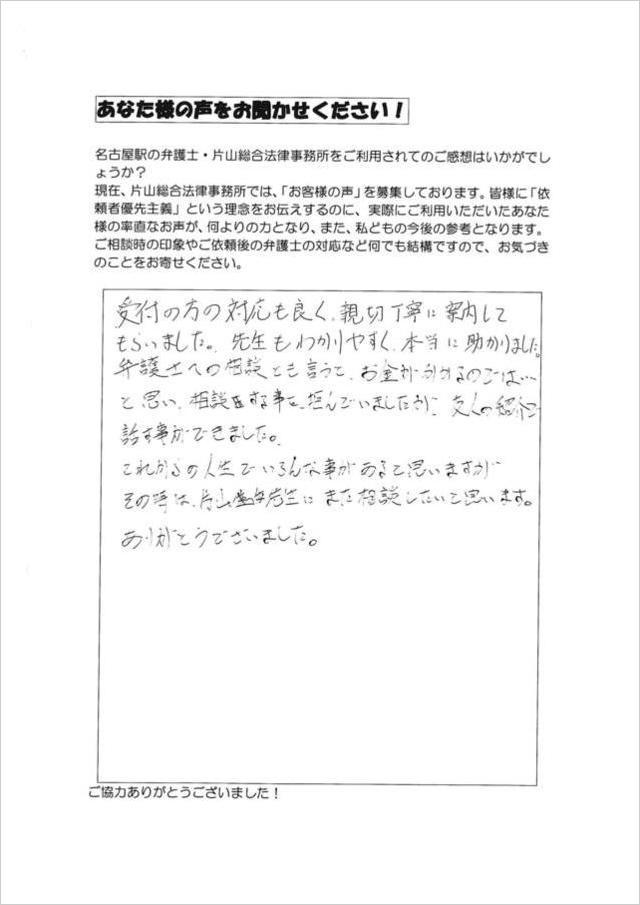 あなた様の声をお聞かせください！
名古屋駅の弁護士・片山総合法律事務所をご利用されてのご感想はいかがでし
ょうか？
現在、片山総合法律事務所では、「お客様の声」を募集しております。皆様に「依
頼者優先主義」という理念をお伝えするのに、実際にご利用いただいたあなた
様の率直なお声が、何よりの力となり、また、私どもの今後の参考となります。
ご相談時の印象やご依頼後の弁護士の対応など何でも結構ですので、お気づき
のことをお寄せください。
受付の方の対応も良く、親切丁寧に案内して
もらいました。先生もわかりやすく、本当に助かりました。
弁護士への相談とも言うと、お金がかかるのでは…
と思い、相談をする事を拒んでいましたが、友人の紹介で
話す事ができました。
これからの人生でいろんな事があると思いますが
その時は、片山先生にまた相談したいと思います。
ありがとうございました。
ご協力ありがとうございました！